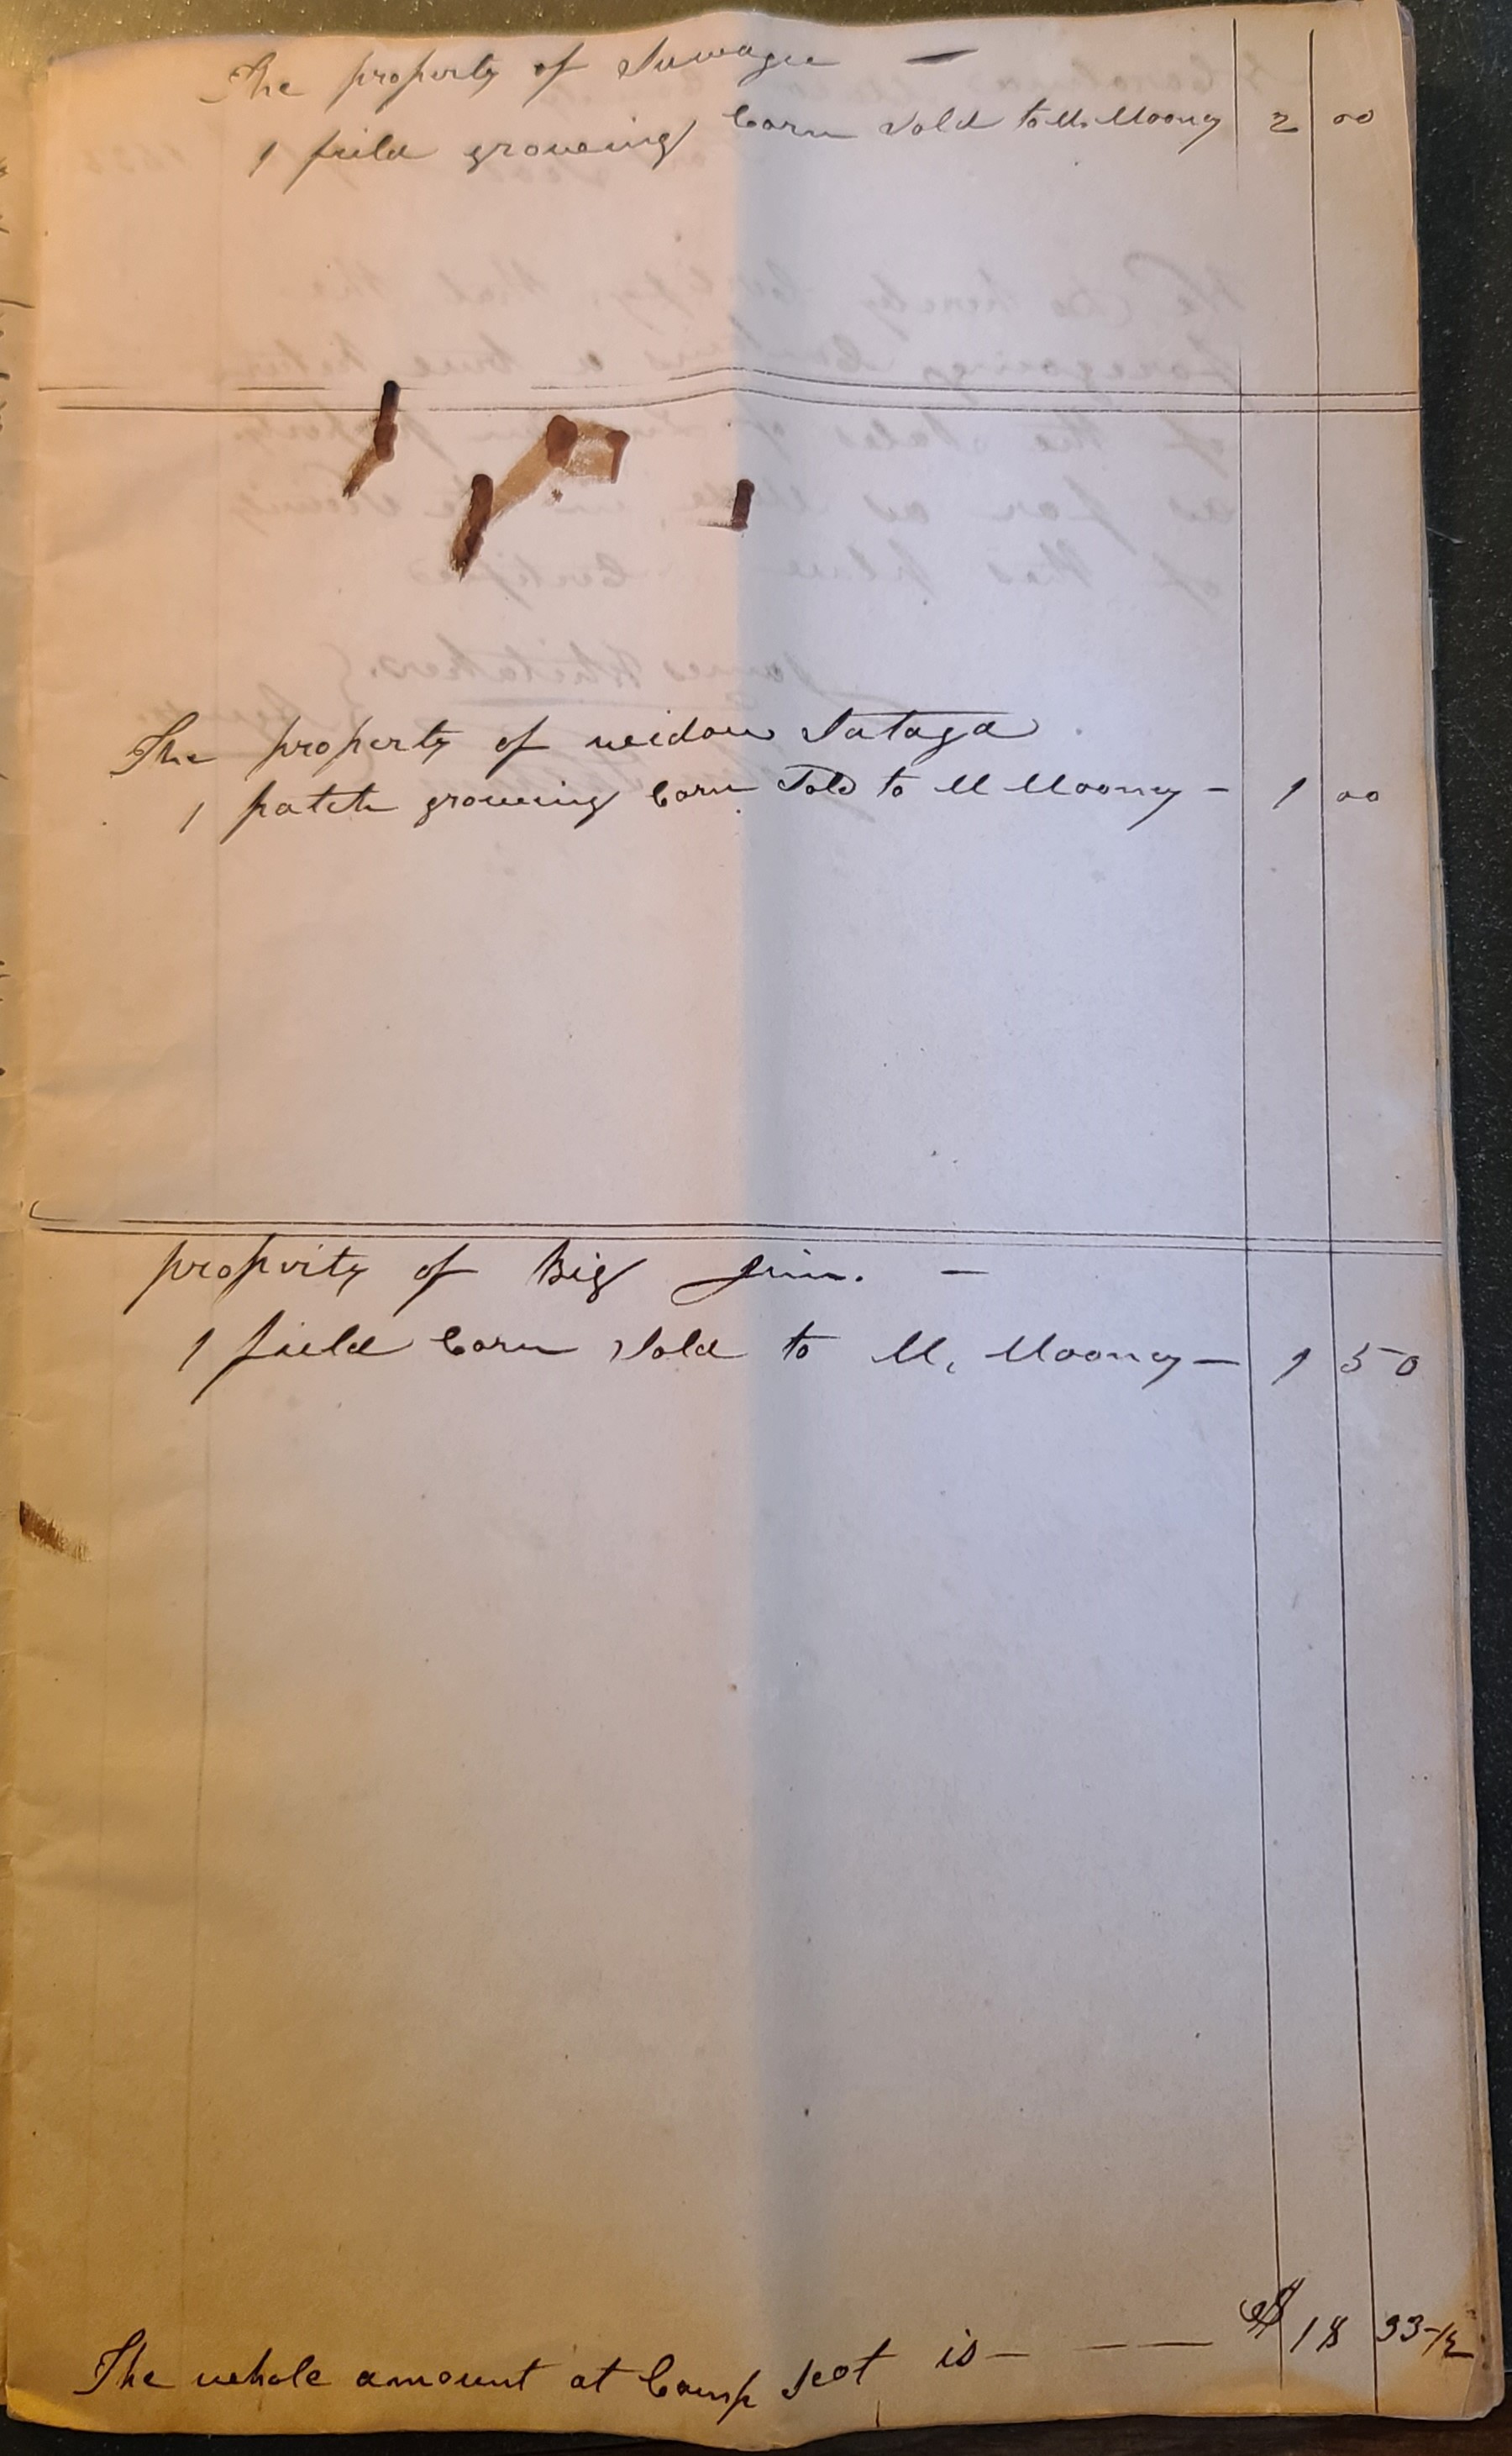 The property of Suwagee —
1 field growing Corn Sold to M. Mooney 2 00
The property of widow Sataga
1 patch growing Corn Sold to M Mooney — 1 00
property of Big Jim. —
1 field Corn Sold to M. Mooney — 1 50
The whole amount at Camp Scot is — — — $ 18 33 1/2